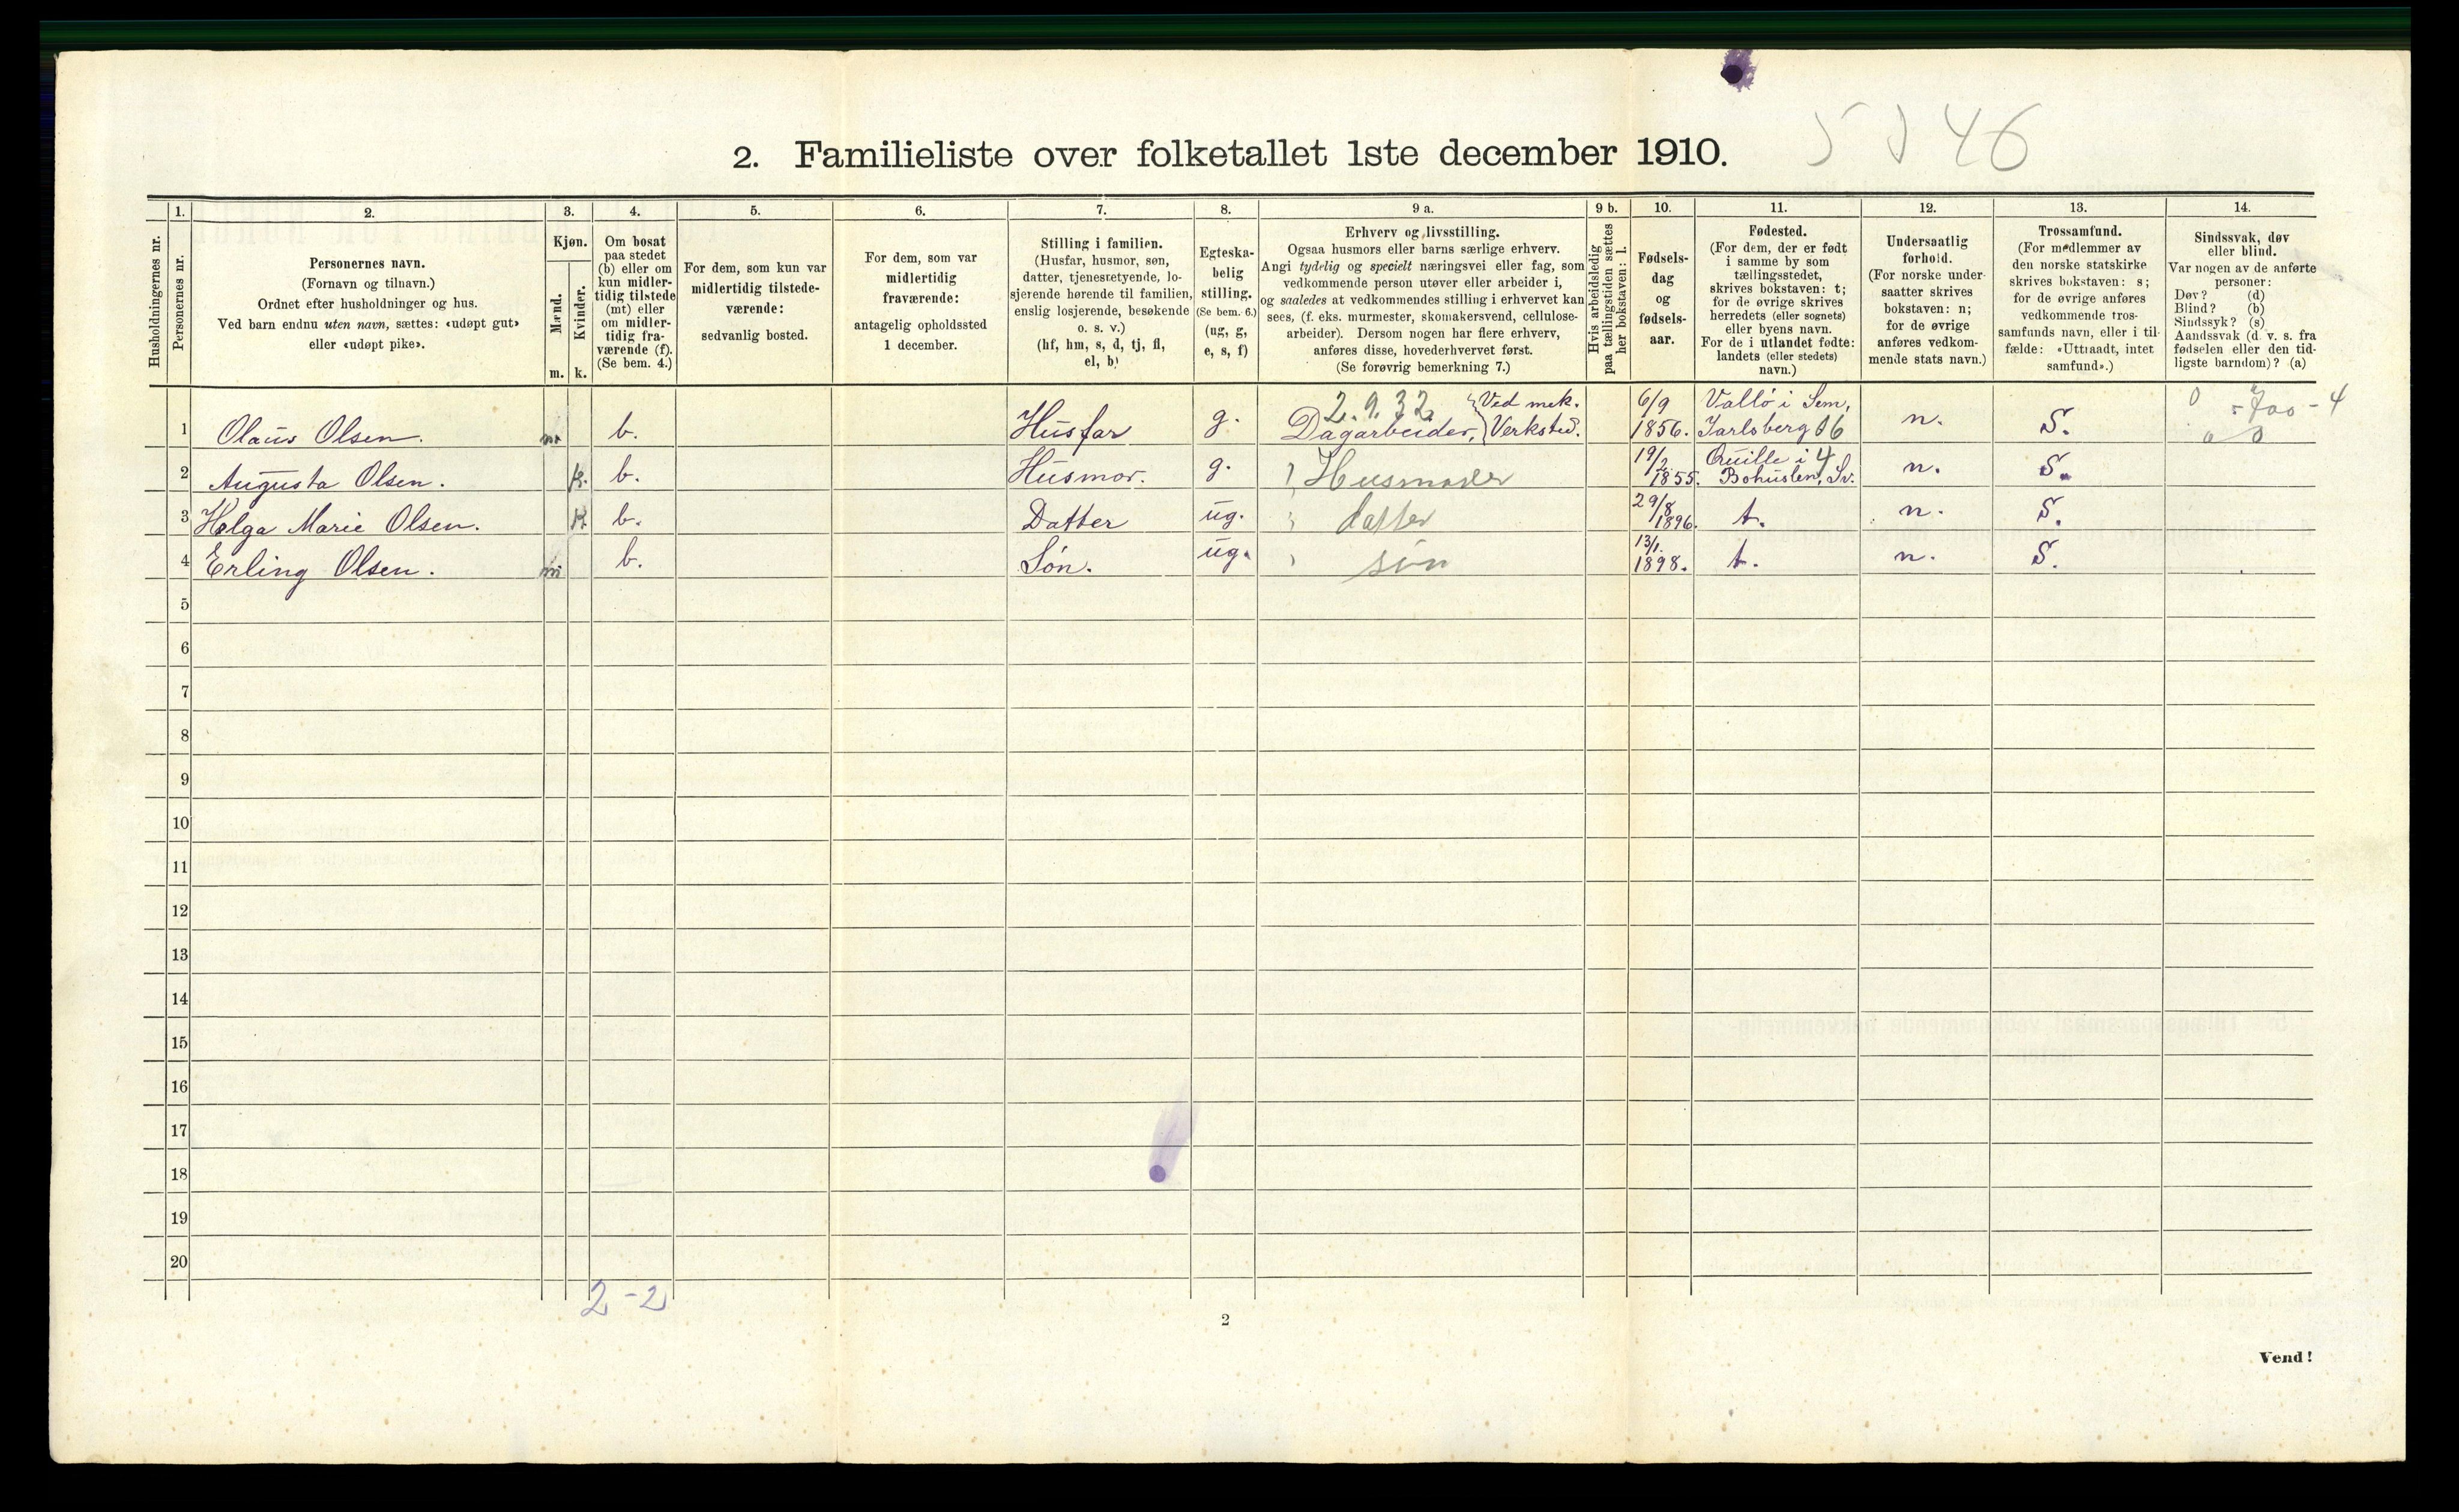 5 46
2. Familieliste over folketallet 1ste december 1910.
Husholdningernes nr.
1.
Personernes nr.
2.
Personernes navn.
(Fornavn og tilnavn.)
Ordnet efter husholdninger og hus.
Ved barn endnu uten navn, sættes: «udøpt gut»
eller «udøpt pike».
3.
Kjøn.
Mænd.
Kvinder.
m. k.
4.
Om bosat
paa stedet
(b) eller om
kun midler-
tidig tilstede
(mt) eller
om midler-
tidig fra-
værende (f).
(Se bem. 4.)
5.
For dem, som kun var
midlertidig tilstede-
værende:
sedvanlig bosted.
6.
For dem, som var
midlertidig
fraværende:
antagelig opholdssted
1 december.
7.
Stilling i familien.
(Husfar, husmor, søn,
datter, tjenestetyende, lo-
sjerende hørende til familien,
enslig losjerende, besøkende
o. s. v.)
(hf, hm, s, d, tj, fl,
el, b)
8.
Egteska-
belig
stilling.
(Se bem. 6.)
(ug, g,
e, s, f)
9 a.
Erhverv og livsstilling.
Ogsaa husmors eller barns særlige erhverv.
Angi tydelig og specielt næringsvei eller fag, som
vedkommende person utøver eller arbeider i,
og saaledes at vedkommendes stilling i erhvervet kan
sees, (f. eks. murmester, skomakersvend, cellulose-
arbeider). Dersom nogen har flere erhverv,
anføres disse, hovederhvervet først.
(Se forøvrig bemerkning 7.)
9 b.
Hvis arbeidsledig
paa tællingstiden sættes
her bokstaven: l.
10.
Fødsels-
dag
og
fødsels-
aar.
11.
Fødested.
(For dem, der er født
i samme by som
tællingsstedet,
skrives bokstaven: t;
for de øvrige skrives
herredets (eller sognets)
eller byens navn.
For de i utlandet fødte:
landets (eller stedets)
navn.)
12.
Undersaatlig
forhold.
(For norske under-
saatter skrives
bokstaven: n;
for de øvrige
anføres vedkom-
mende stats navn.)
13.
Trossamfund.
(For medlemmer av
den norske statskirke
skrives bokstaven: s;
for de øvrige anføres
vedkommende tros-
samfunds navn, eller i til-
fælde: «Uttraadt, intet
samfund».)
14.
Sindssvak, døv
eller blind.
Var nogen av de anførte
personer:
Døv? (d)
Blind? (b)
Sindssyk? (s)
Aandssvak (d. v. s. fra
fødselen eller den tid-
ligste barndom)? (a)
1 Olaus Olsen. m b. Husfar g. 2.9.32. Dagarbeider, Ved mek. Verksted. 6/9 1856. Vallö i Sem, Jarlsberg 06 n. S. 0 700-4
2 Augusta Olsen. k. b. Husmor. g. Husmoder 19/2 1855. Quille i 4 Bohuslen, Sv. n. S.
3 Helga Marie Olsen. k b. Datter ug. datter 29/8 1896. t. n. S.
4 Erling Olsen. m b. Sön. ug. sön 13/1. 1898. t. n. S.
5
6
7
8
9
10
11
12
13
14
15
16
17
18
19
20
2-2
2
Vend!